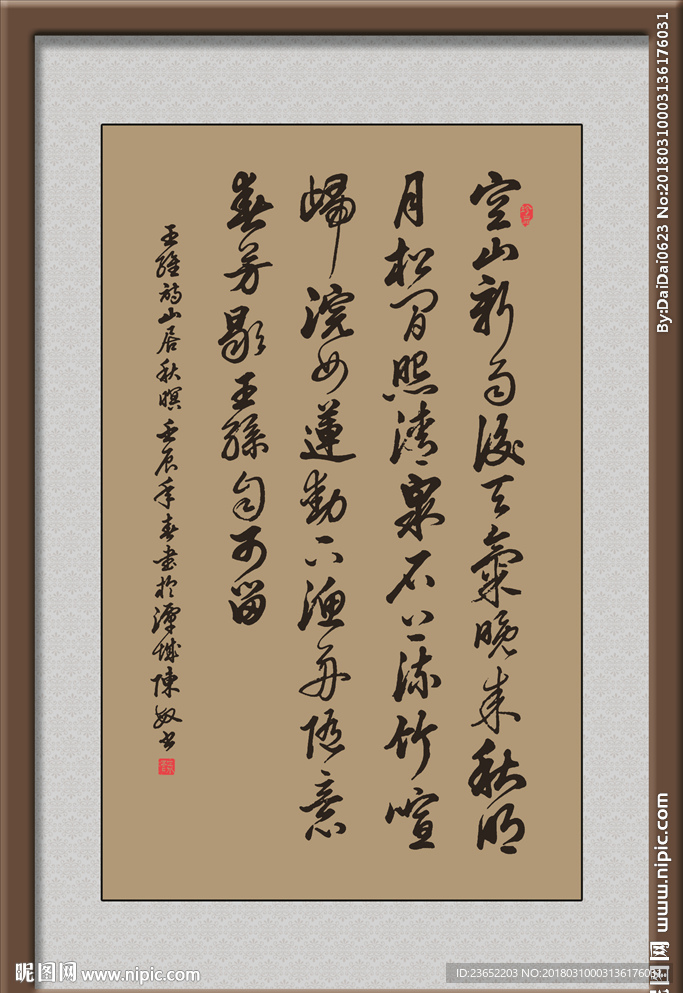 空山新雨後天氣晚来秋明
月松間照清泉石上流竹喧
歸浣女蓮動下漁舟随意
春芳歇王孫自可留
王維詩山居秋暝 壬辰年春書於潭城陳敏书
By:DaiDai0623 No:20180310003136176031
www.nipic.com 昵图网
昵图网 www.nipic.com
ID:23652203 NO:20180310003136176031